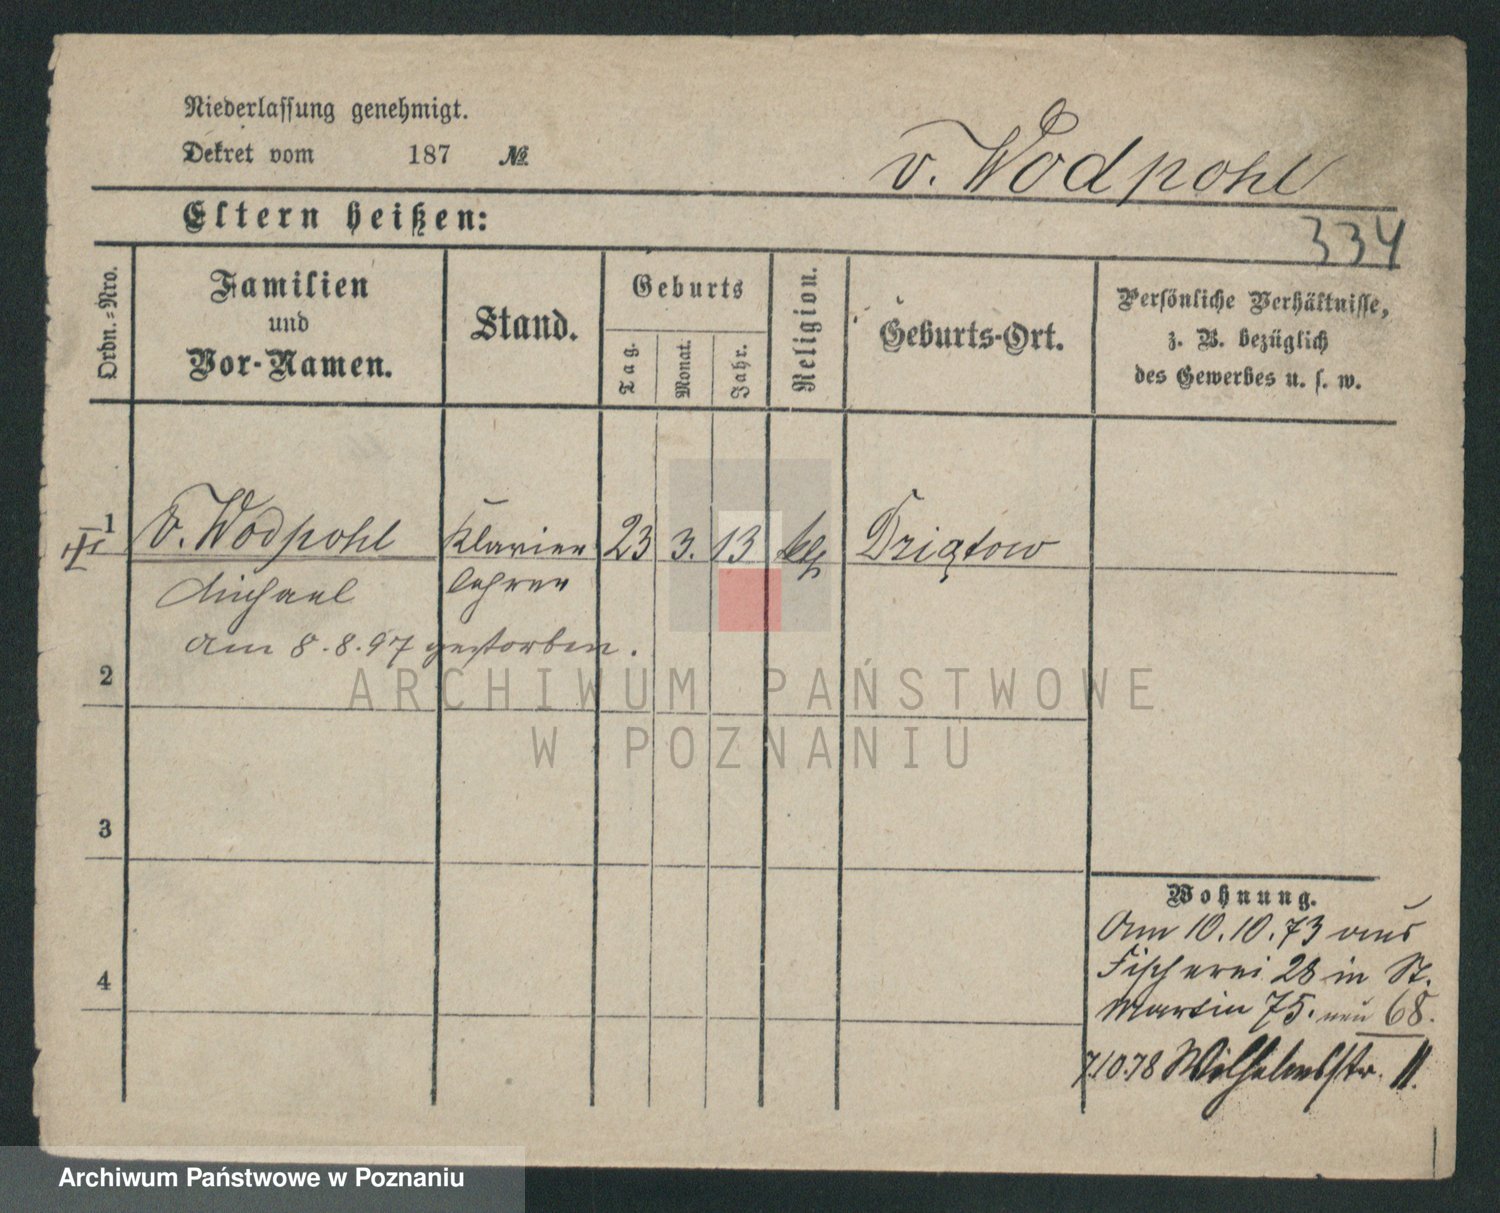 Niederlassung genehmigt.
Dekret vom 187 №
v. Wodpohl
Eltern heißen:
334
Ordn.-Nro.
Familien
und
Vor-Namen.
Stand.
Geburts
Tag.
Monat.
Jahr.
Religion.
Geburts-Ort.
Persönliche Verhältnisse,
z. B. bezüglich
des Gewerbes u. s. w.
1
v. Wodpohl
Klavier
23
3.
13
Michael
lehrer
am 8.8.97 gestorben.
2
3
4
ARCHIWUM PAŃSTWOWE
W POZNANIU
Wohnung.
Am 10.10.73 aus
Fischerei 28 in St.
Martin 75. neu 68.
7.10.78 Wilhelmsstr. 11.
Archiwum Państwowe w Poznaniu